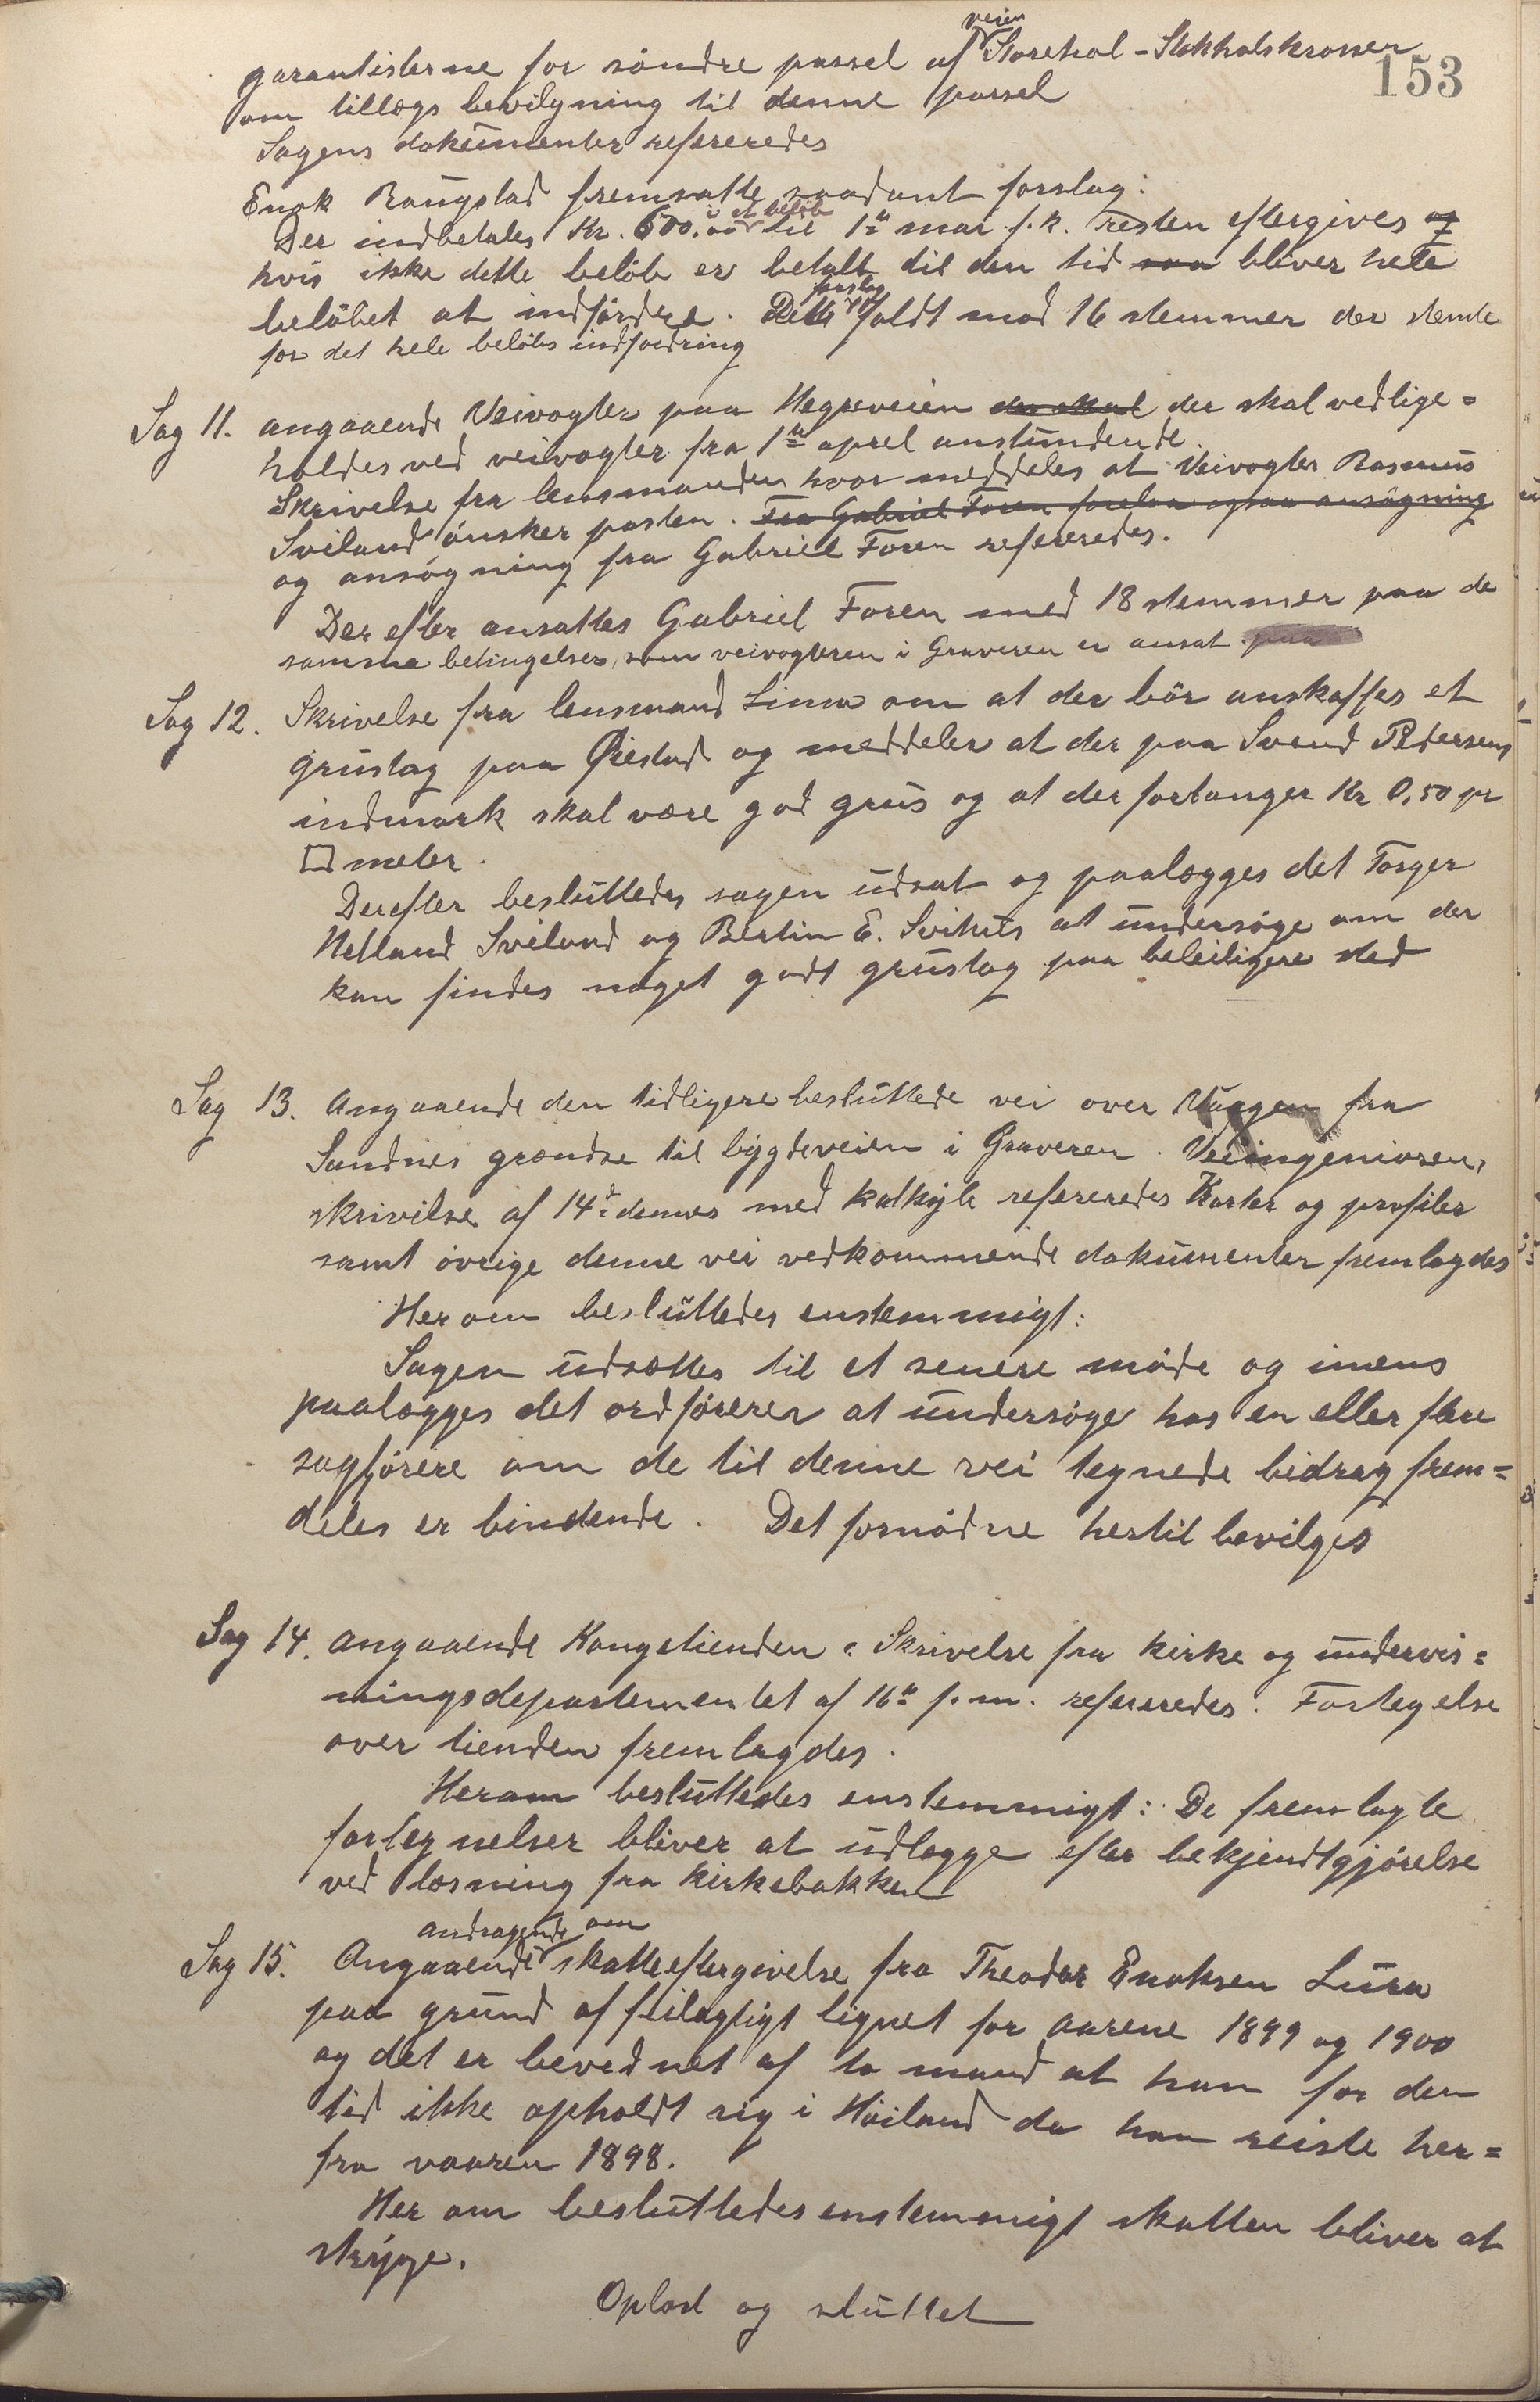 153
garantisterne for søndre passel af veien Storehol - Stokholskrossen
om tillægs bevilgning til denne parsel
Sagens dokumenter refereredes
Enok Raugstad fremsatte saadant forslag:
Der indbetales Kr. 600.00 i et beløb til 1ste mai f.k. resten eftergives og
hvis ikke dette beløb er betalt til den tid saa bliver hele
beløbet at indfordre. Dette forslag faldt mod 16 stemmer der stemte
for det hele beløbs indfordring
Sag 11. angaaende Veivogter paa Hegreveien der skal der skal vedlige=
holdes ved veivogter fra 1ste april anstundende.
Skrivelse fra lensmanden hvor meddeles at Veivogter Rasmus
Sviland ønsker posten. Fra Gabriel Foren forelaa ogsaa ansøgning
og ansøgning fra Gabriel Foren refereredes.
Derefter ansattes Gabriel Foren med 18 stemmer paa de
samme betingelser, som veivogteren i Graveren er ansat paa
Sag 12. Skrivelse fra lensmand Lima om at der bør anskaffes et
grustag paa Øiestad og meddeler at der paa Svend Pedersens
indmark skal være god grus og at der forlanger Kr 0,50 pr
□ meter.
Derefter besluttedes sagen udsat og paalægges det Torger
Hetland Sviland og Bertin E. Svihus at undersøge om der
kan findes noget godt grustag paa beleiligere sted
Sag 13. Angaaende den tidligere besluttede vei over Vaagen fra
Sandnes grændse til bygdeveien i Graveren. Veiingeniøren,
skrivelse af 14d dennes med kalkyle refereredes Karter og profiler
samt øvrige denne vei vedkommende dokumenter fremlagdes
Herom besluttedes enstemmigt:
Sagen udsættes til et senere møde og imens
paalægges det ordføreren at undersøge hos en eller flere
sagførere om de til denne vei tegnede bidrag frem=
deles er bindende. Det fornødne hertil bevilges
Sag 14. angaaende Kongetienden. Skrivelse fra kirke og undervis=
ningsdepartementet af 16de f.m. refereredes. Fortegelse
over tienden fremlagdes.
Herom besluttedes enstemmigt: De fremlagte
fortegnelser bliver at udlægge efter bekjendtgjørelse
ved læsning fra kirkebakken
Sag 15. Angaaende andragende om skatteeftergivelse fra Theodor Enoksen Lura
paa grund af feilagtigt lignet for aarene 1899 og 1900
og det er bevidnet af to mand at han for den
tid ikke opholdt sig i Høiland da han reiste her=
fra vaaren 1898.
Her om besluttedes enstemmigt skatten bliver at
stryge.
Oplæst og sluttet